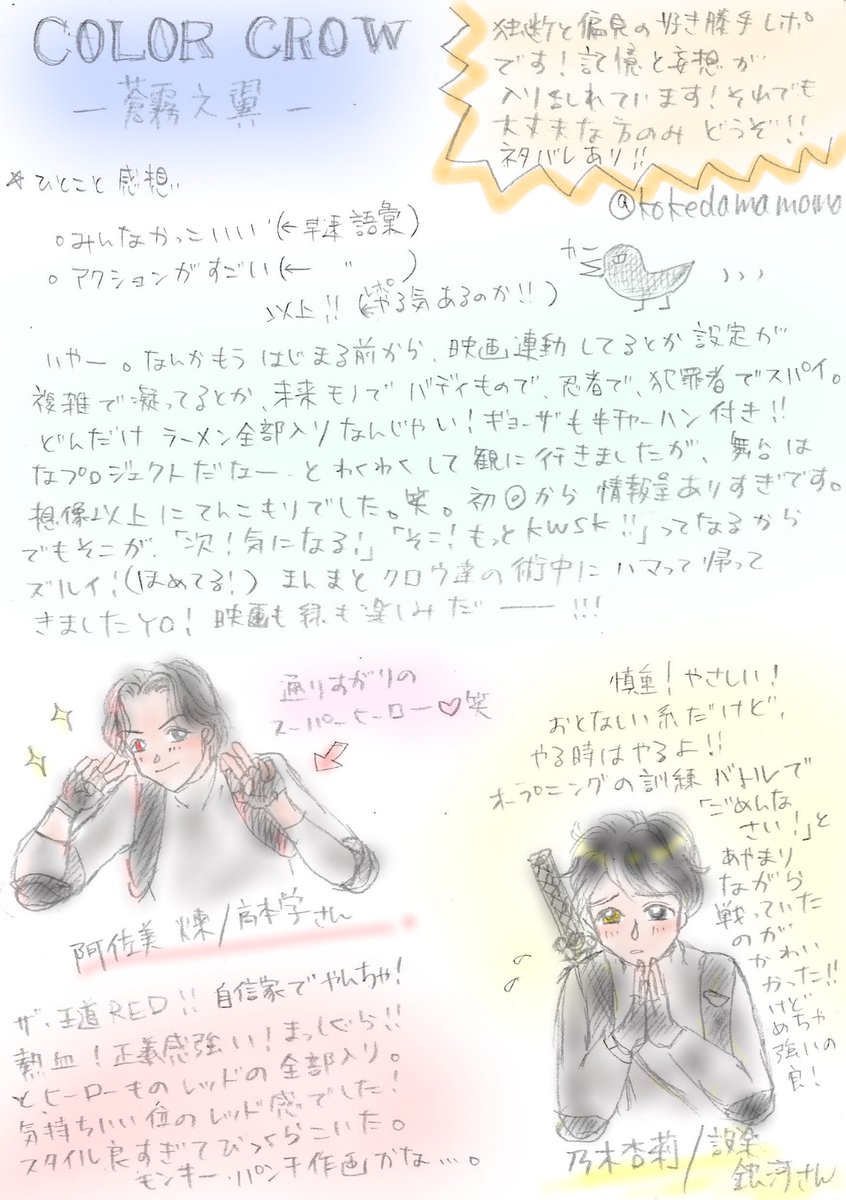 COLOR CROW
— 蒼霧之翼 —
独断と偏見の好き勝手レポ
です！記憶と妄想が
入り乱れています！それでも
大丈夫な方のみ どうぞ!!
ネタバレあり!!
@kokedamamomo
☆ひとこと感想..
○みんなかっこいい(←早速語彙)
○アクションがすごい(← 〃 )
以上!!(レポやる気あるのか!!)
カニ
いやー。なんかもう はじまる前から、映画連動してるとか設定が
複雑で凝ってるとか、未来モノで バディもので、忍者で、犯罪者でスパイ。
どんだけ ラーメン全部入りなんじゃい！ギョーザも半チャーハン付き!!
なプロジェクトだなー とわくわくして観に行きましたが、舞台は
想像以上にてんこもりでした。笑。初回から 情報量ありすぎです。
でもそこが、「次！気になる！」「そこ！もっとkwsk!!」ってなるから
ズルイ！(ほめてる！) まんまと クロウ達の術中に ハマって帰って
きましたYO！ 映画も続も楽しみだ ——!!!
通りすがりの
スーパーヒーロー♡笑
阿佐美 煉/高本学さん
ザ・王道RED!! 自信家でやんちゃ！
熱血！正義感強い！まっしぐら!!
と、ヒーローもの レッドの 全部入り。
気持ちいい位の レッド感でした！
スタイル良すぎてびっくらこいた。
モンキー・パンチ作画かな…。
慎重！やさしい！
おとなしい系だけど、
やる時はやるよ!!
オープニングの訓練バトルで
「ごめんな
さい！」と
あやまり
ながら
戦っていた
のが
かわい
かった!!
けど
めちゃ
強いの
良！
乃木杏莉/設楽
銀河さん